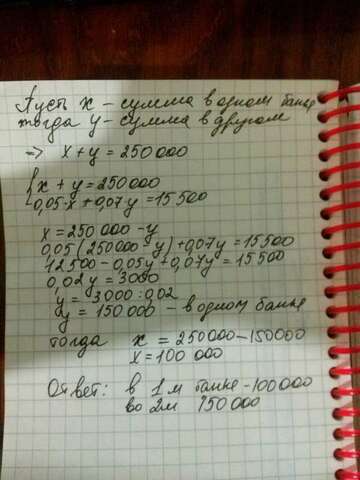 Пусть x - сумма в одном банке
тогда y - сумма в другом
=> x + y = 250 000
{ x + y = 250 000
0,05·x + 0,07y = 15 500
x = 250 000 - y
0,05(250 000 - y) + 0,07y = 15 500
12 500 - 0,05y + 0,07y = 15 500
0,02y = 3000
y = 3000 : 0,02
y = 150 000 - в одном банке
тогда x = 250 000 - 150 000
x = 100 000
Ответ: в 1м банке - 100 000
во 2м 150 000